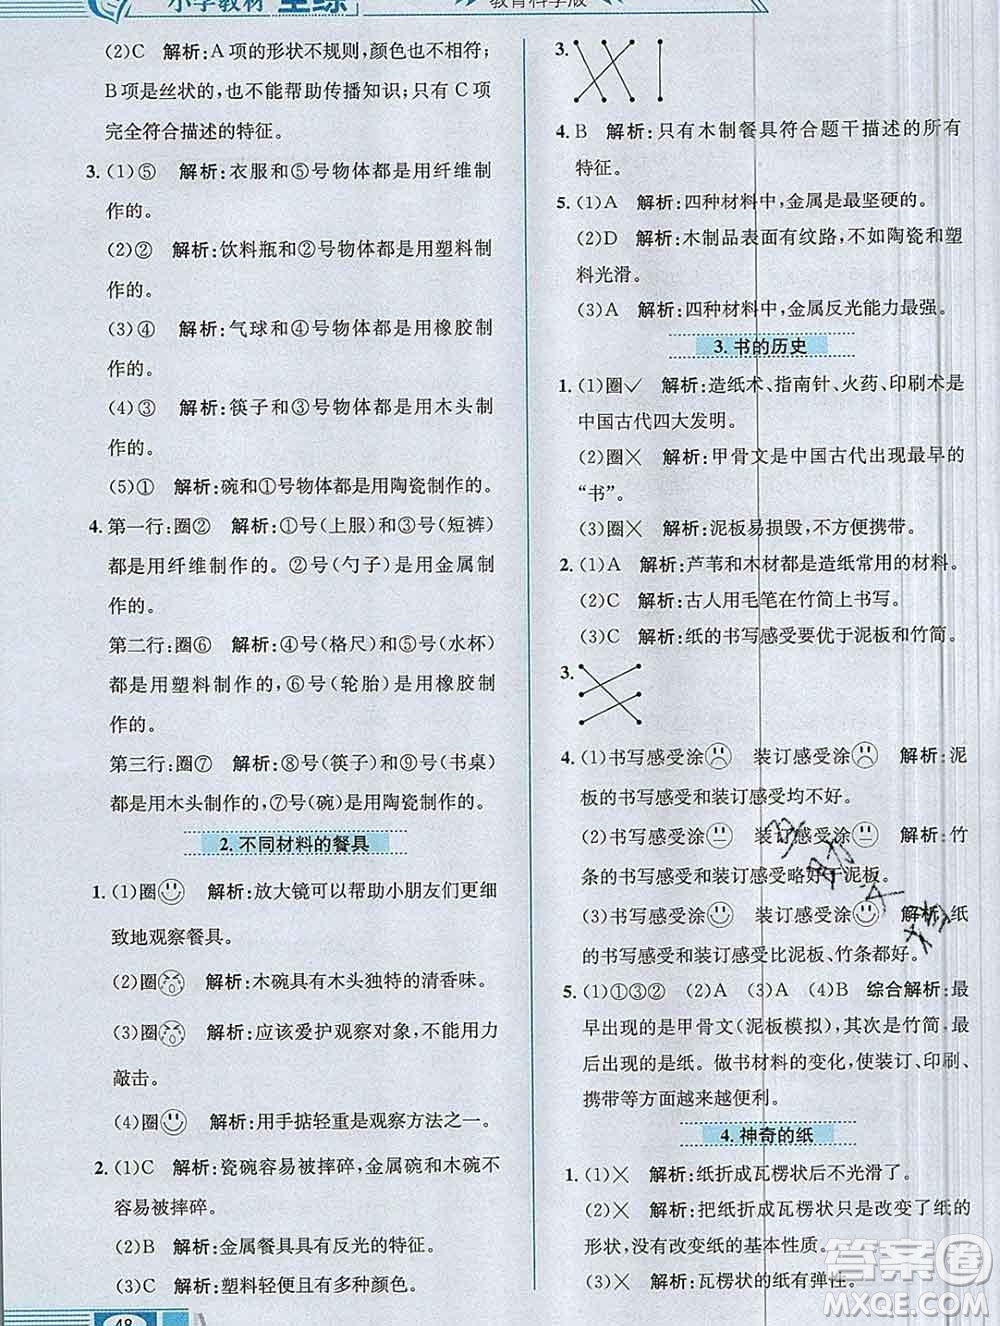 小学教材 全练
教育科学版
(2)C 解析:A项的形状不规则,颜色也不相符;
B项是丝状的,也不能帮助传播知识;只有C项
完全符合描述的特征。
3. (1)⑤ 解析:衣服和⑤号物体都是用纤维制
作的。
(2)② 解析:饮料瓶和②号物体都是用塑料制
作的。
(3)④ 解析:气球和④号物体都是用橡胶制
作的。
(4)③ 解析:筷子和③号物体都是用木头制
作的。
(5)① 解析:碗和①号物体都是用陶瓷制作的。
4. 第一行:圈② 解析:①号(上服)和③号(短裤)
都是用纤维制作的,②号(勺子)是用金属制
作的。
第二行:圈⑥ 解析:④号(格尺)和⑤号(水杯)
都是用塑料制作的,⑥号(轮胎)是用橡胶制
作的。
第三行:圈⑦ 解析:⑧号(筷子)和⑨号(书桌)
都是用木头制作的,⑦号(碗)是用陶瓷制作的。
2. 不同材料的餐具
1. (1)圈 解析:放大镜可以帮助小朋友们更细
致地观察餐具。
(2)圈 解析:木碗具有木头独特的清香味。
(3)圈 解析:应该爱护观察对象,不能用力
敲击。
(4)圈 解析:用手掂轻重是观察方法之一。
2. (1)C 解析:瓷碗容易被摔碎,金属碗和木碗不
容易被摔碎。
(2)B 解析:金属餐具具有反光的特征。
(3)C 解析:塑料轻便且有多种颜色。
48
3.
4. B 解析:只有木制餐具符合题干描述的所有
特征。
5. (1)A 解析:四种材料中,金属是最坚硬的。
(2)D 解析:木制品表面有纹路,不如陶瓷和塑
料光滑。
(3)A 解析:四种材料中,金属反光能力最强。
3. 书的历史
1. (1)圈✓ 解析:造纸术、指南针、火药、印刷术是
中国古代四大发明。
(2)圈× 解析:甲骨文是中国古代出现最早的
“书”。
(3)圈× 解析:泥板易损毁,不方便携带。
2. (1)A 解析:芦苇和木材都是造纸常用的材料。
(2)C 解析:古人用毛笔在竹简上书写。
(3)C 解析:纸的书写感受要优于泥板和竹简。
3.
4. (1)书写感受涂 装订感受涂 解析:泥
板的书写感受和装订感受均不好。
(2)书写感受涂 装订感受涂 解析:竹
条的书写感受和装订感受略好于泥板。
(3)书写感受涂 装订感受涂 解析:纸
的书写感受和装订感受比泥板、竹条都好。
5. (1)①③② (2)A (3)A (4)B 综合解析:最
早出现的是甲骨文(泥板模拟),其次是竹简,最
后出现的是纸。做书材料的变化,使装订、印刷、
携带等方面越来越便利。
4. 神奇的纸
1. (1)× 解析:纸折成瓦楞状后不光滑了。
(2)× 解析:把纸折成瓦楞状只是改变了纸的
形状,没有改变纸的基本性质。
(3)× 解析:瓦楞状的纸有弹性。
答案圈
MXQE.COM